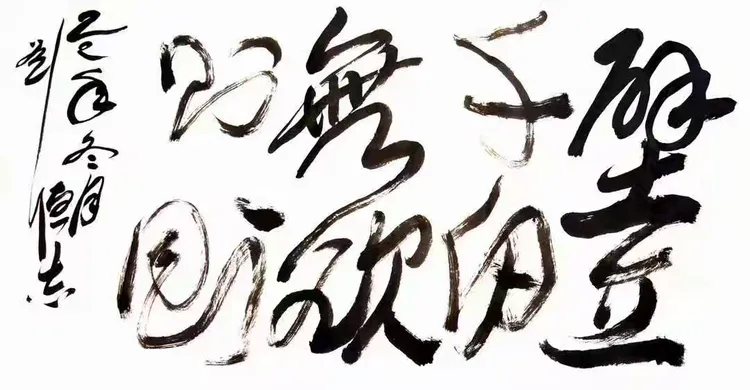 壁立
千仞
無欲
則剛
冬月